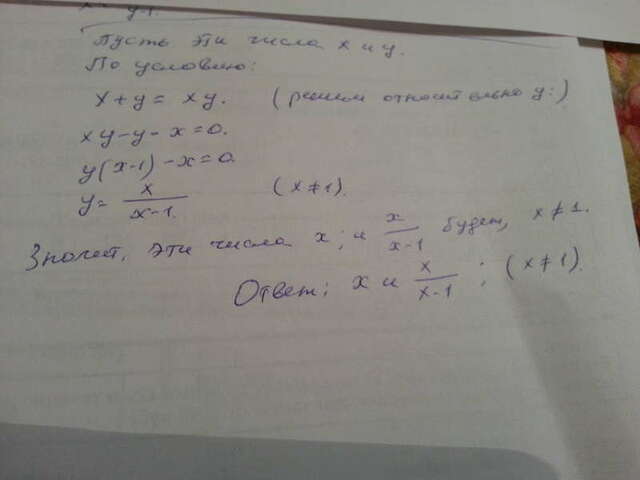 y-1.
Пусть эти числа x и y.
По условию:
x+y = xy. (решим относительно y:)
xy-y-x=0.
y(x-1)-x=0.
y= x/x-1. (x≠1).
Значит, эти числа x; и x/x-1 будет, x≠1.
Ответ: x и x/x-1 ; (x≠1).